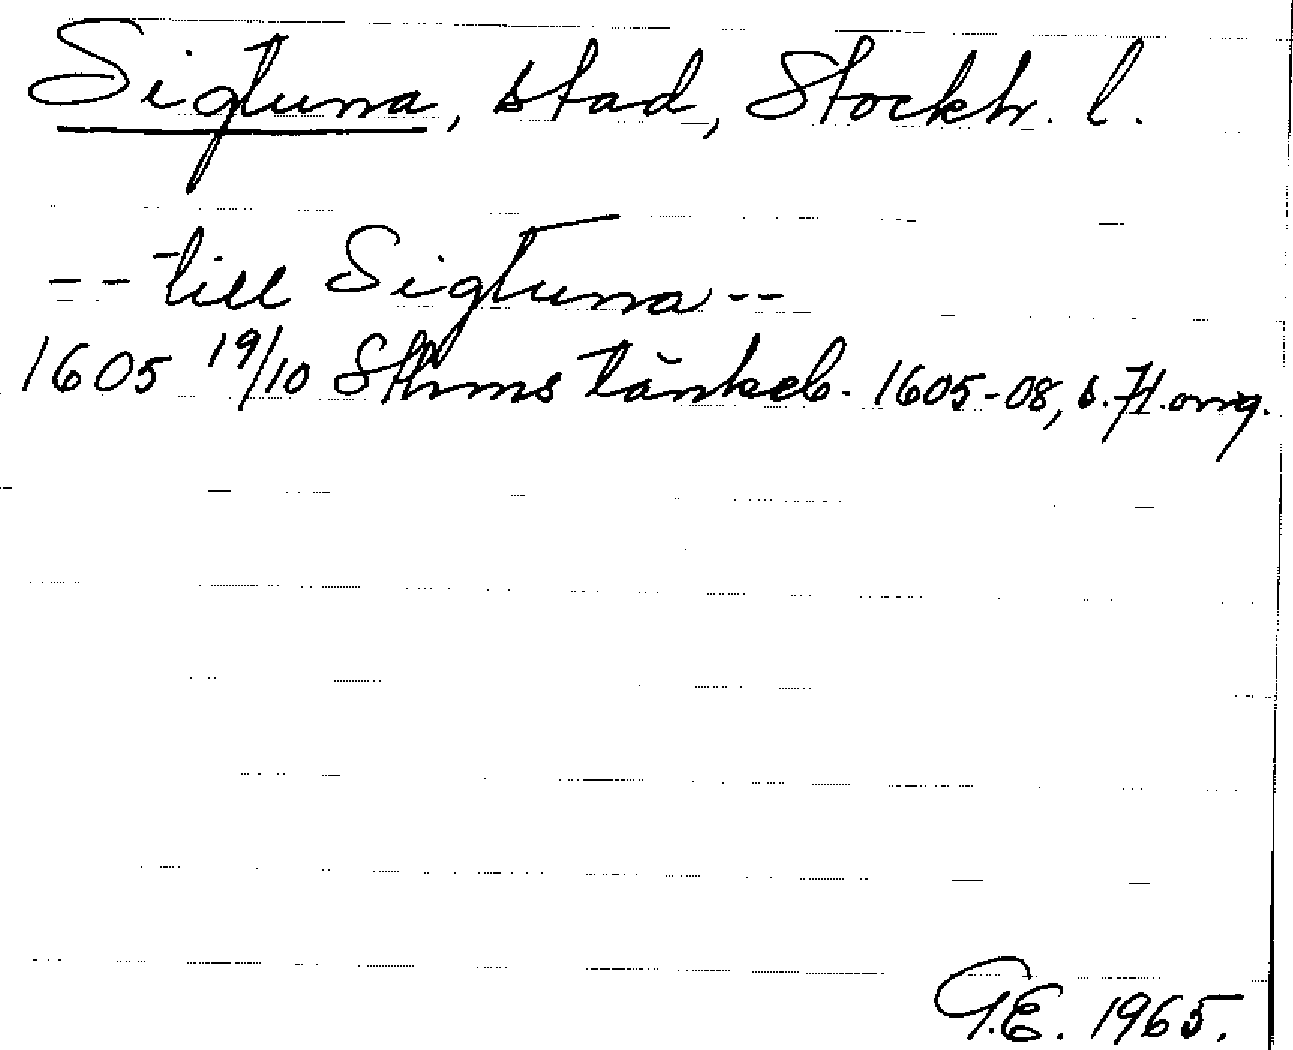 Sigtuna, stad, Stockh. l.
-- till Sigtuna --
1605 19/10 Sthms tänkeb. 1605-08, s. 71. omg.
G.E. 1965.